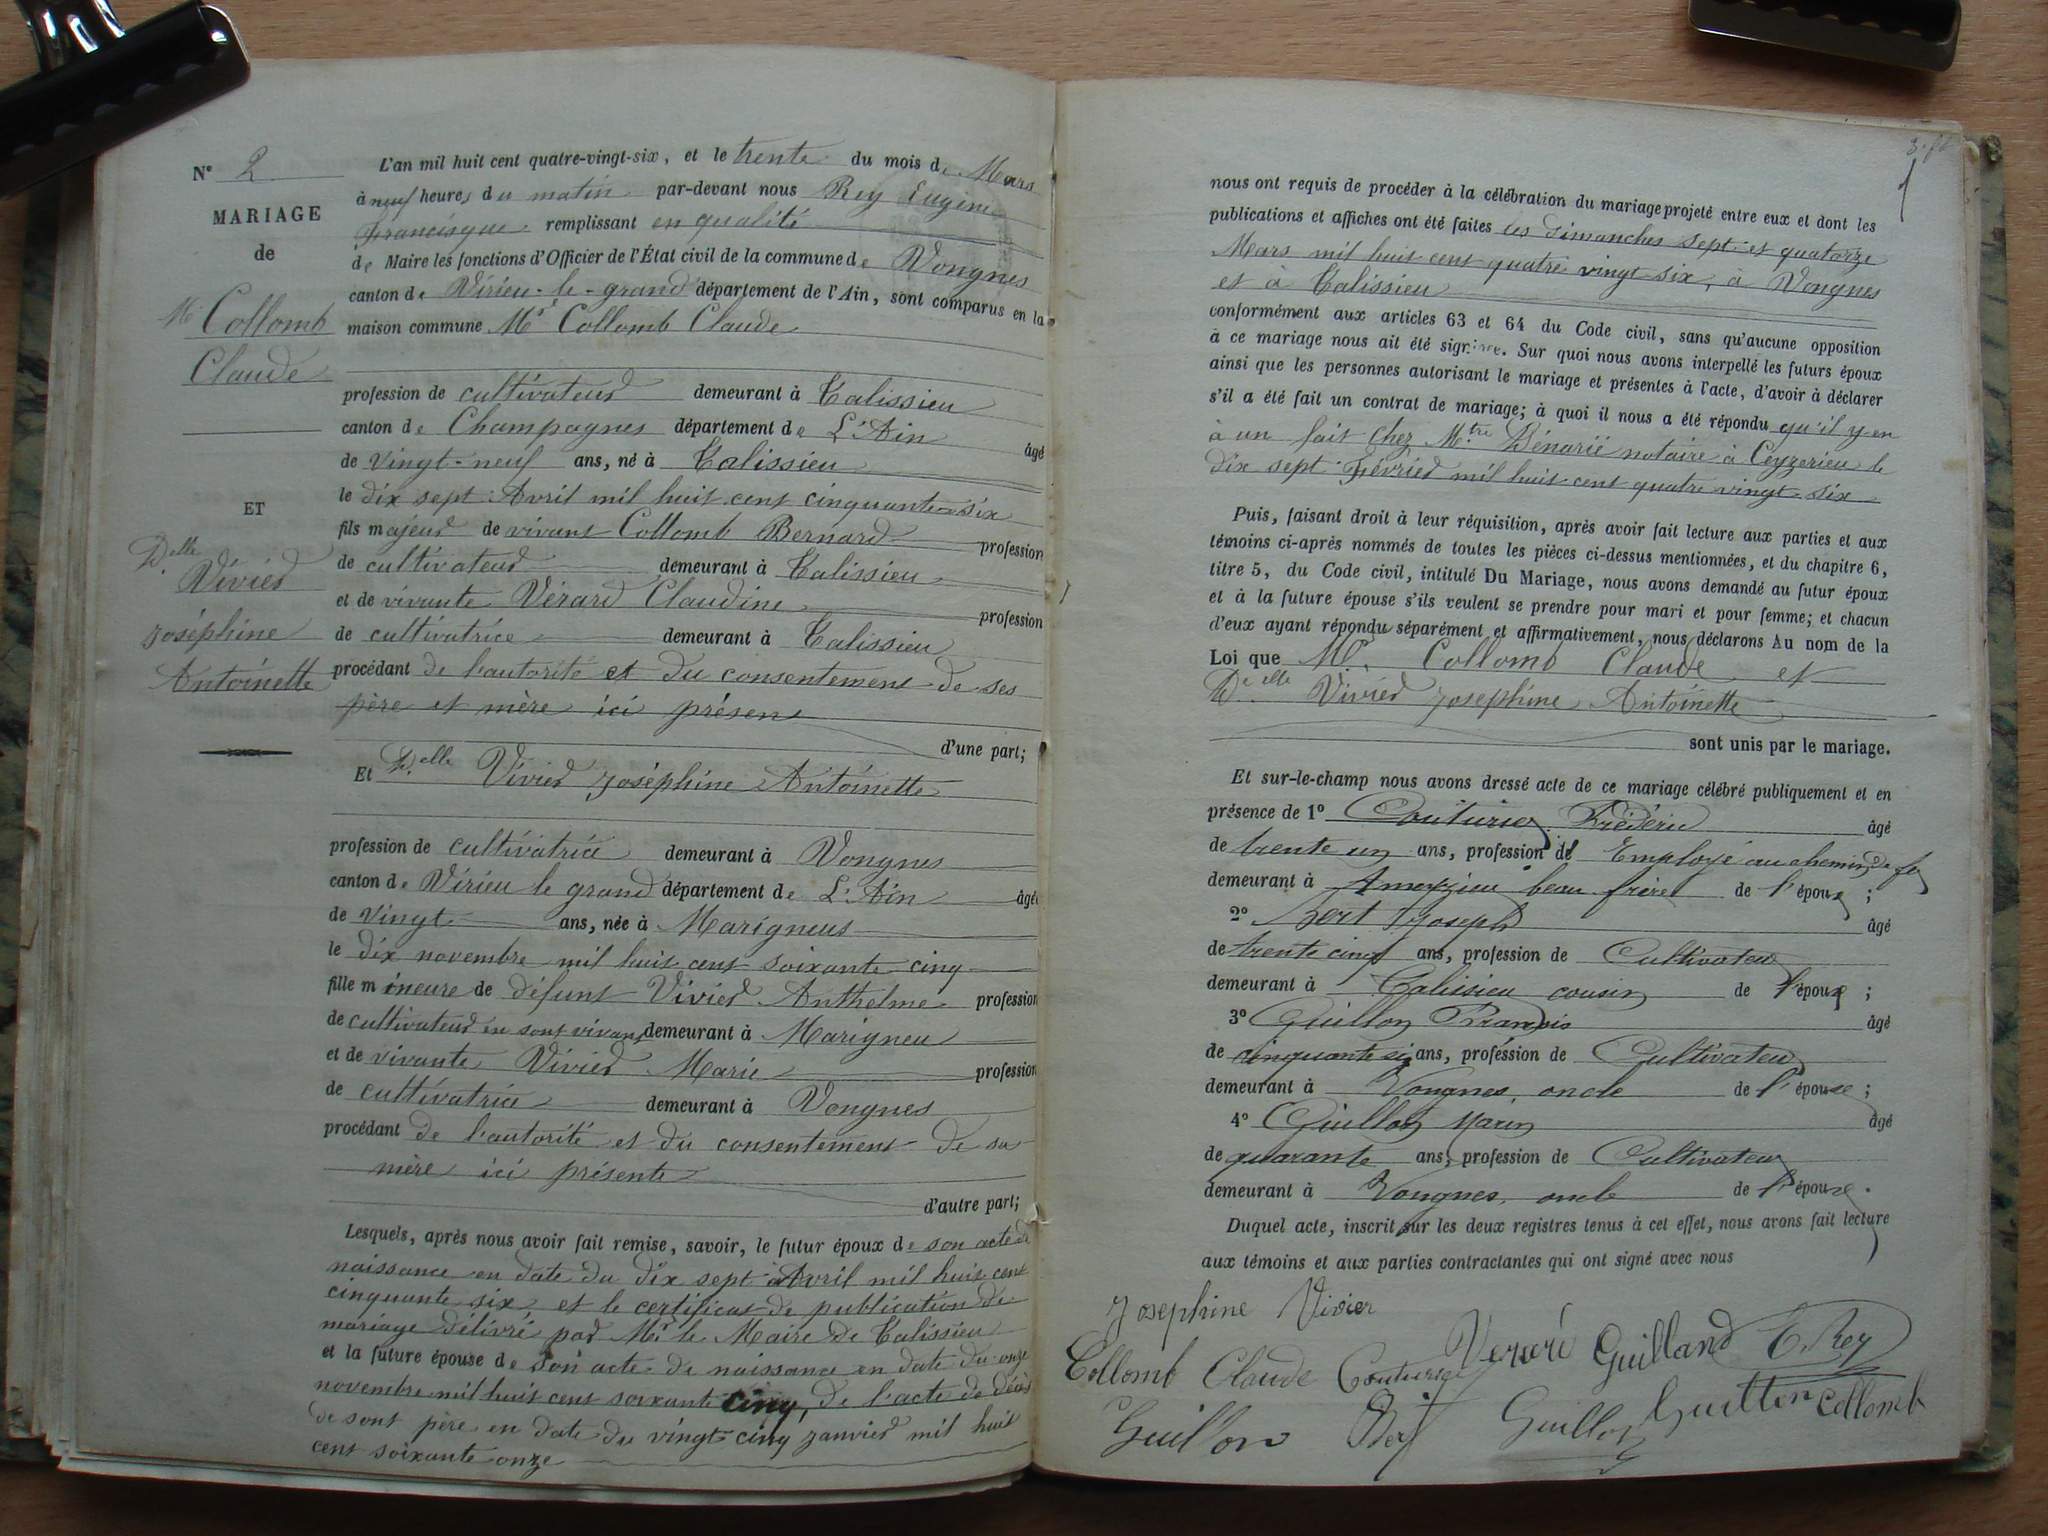 N° 2
MARIAGE
de
Mr Collomb
Claude
ET
Delle
Vivier
Joséphine
Antoinette
L'an mil huit cent quatre-vingt-six, et le trente du mois de Mars
à neuf heures du matin par-devant nous Rey Eugène
Francisque remplissant en qualité
de Maire les fonctions d'Officier de l'État civil de la commune de Vongnes
canton de Virieu-le-grand département de l'Ain, sont comparus en la
maison commune Mr Collomb Claude
profession de cultivateur demeurant à Talissieu
canton de Champagnes département de L'Ain âgé
de vingt-neuf ans, né à Talissieu
le dix sept Avril mil huit cent cinquante-six
fils majeur de vivant Collomb Bernard profession
de cultivateur demeurant à Talissieu
et de vivante Vérard Claudine profession
de cultivatrice demeurant à Talissieu
procédant de l'autorité et du consentement de ses
père et mère ici présent
d'une part;
Et Delle Vivier Joséphine Antoinette
profession de cultivatrice demeurant à Vongnes
canton de Virieu le grand département de L'Ain âgée
de vingt ans, née à Marigneus
le dix novembre mil huit cent soixante cinq
fille mineure de défunt Vivier Anthelme profession
de cultivateur en sont vivant demeurant à Marigneu
et de vivante Vivier Marie profession
de cultivatrice demeurant à Vongnes
procédant de l'autorité et du consentement de sa
mère ici présente
d'autre part;
Lesquels, après nous avoir fait remise, savoir, le futur époux de son acte de
naissance en date du dix sept Avril mil huit cent
cinquante six, et le certificat de publication de
mariage délivré par Mr le Maire de Talissieu
et la future épouse de son acte de naissance en date du onze
novembre mil huit cent soixante cinq, de l'acte de décès
de sont père en date du vingt cinq janvier mil huit
cent soixante onze
nous ont requis de procéder à la célébration du mariage projeté entre eux et dont les
publications et affiches ont été faites les dimanches sept et quatorze
Mars mil huit cent quatre vingt six, à Vongnes
et à Talissieu
conformément aux articles 63 et 64 du Code civil, sans qu'aucune opposition
à ce mariage nous ait été signifiée. Sur quoi nous avons interpellé les futurs époux
ainsi que les personnes autorisant le mariage et présentes à l'acte, d'avoir à déclarer
s'il a été fait un contrat de mariage; à quoi il nous a été répondu qu'il y en
à un fait chez Mtre Bénarié notaire à Ceyzerieu le
dix sept Février mil huit cent quatre vingt six
Puis, faisant droit à leur réquisition, après avoir fait lecture aux parties et aux
témoins ci-après nommés de toutes les pièces ci-dessus mentionnées, et du chapitre 6,
titre 5, du Code civil, intitulé Du Mariage, nous avons demandé au futur époux
et à la future épouse s'ils veulent se prendre pour mari et pour femme; et chacun
d'eux ayant répondu séparément et affirmativement, nous déclarons Au nom de la
Loi que Mr. Collomb Claude et
Delle Vivier Josephine Antoinette
sont unis par le mariage.
Et sur-le-champ nous avons dressé acte de ce mariage célébré publiquement et en
présence de 1° Couturier Frédéric âgé
de trente un ans, profession de Employé au chemin de fer
demeurant à Ameyzieu beau frère de l'époux ;
2° Bert Joseph âgé
de trente cinq ans, profession de Cultivateur
demeurant à Talissieu cousin de l'époux ;
3° Guillon François âgé
de cinquante six ans, profession de Cultivateur
demeurant à Vongnes, oncle de l'épouse ;
4° Guillon Marin âgé
de quarante ans, profession de Cultivateur
demeurant à Vongnes, oncle de l'épouse.
Duquel acte, inscrit sur les deux registres tenus à cet effet, nous avons fait lecture
aux témoins et aux parties contractantes qui ont signé avec nous
Josephine Vivier
Collomb Claude Couturier Guilland E. Rey
Guillon Bert Guillon Guillon Collomb